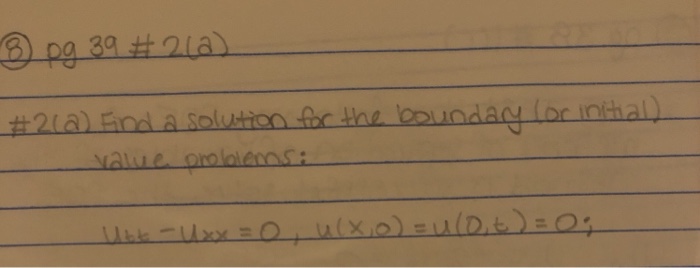 ⑧ pg 39 # 2(a)
#2(a) Find a solution for the boundary (or initial)
value problems:
utt - uxx = 0, u(x,0) = u(0,t) = 0;